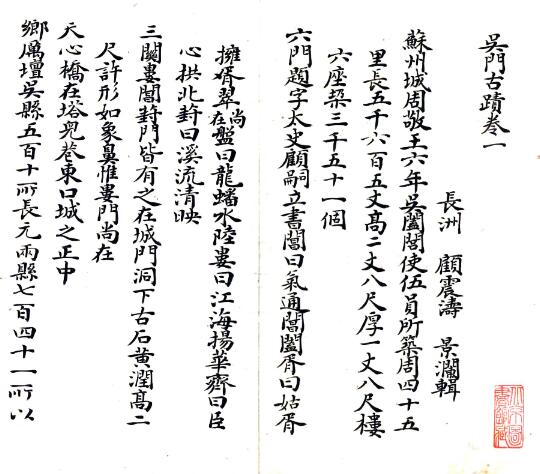 吳門古蹟卷一
長洲 顧震濤 景瀾輯
蘇州城周敬王六年吳闔閭使伍員所築周四十五
里長五千六百五丈高二丈八尺厚一丈八尺樓
六座垜三千五十一個
六門題字太史顧嗣立書閶曰氣通閶闔胥曰姑胥
擁翠尚在盤曰龍蟠水陸婁曰江海揚華齊曰臣
心拱北葑曰溪流清映
三闕婁閶葑門皆有之在城門洞下古石黃潤高二
尺許形如象鼻惟婁門尚在
天心橋在塔兒巷東口城之正中
鄉厲壇吳縣五百十所長元兩縣七百四十一所以